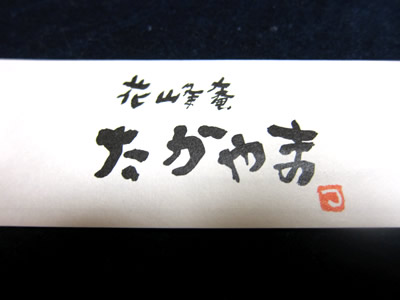 花山峯庵
たかやま